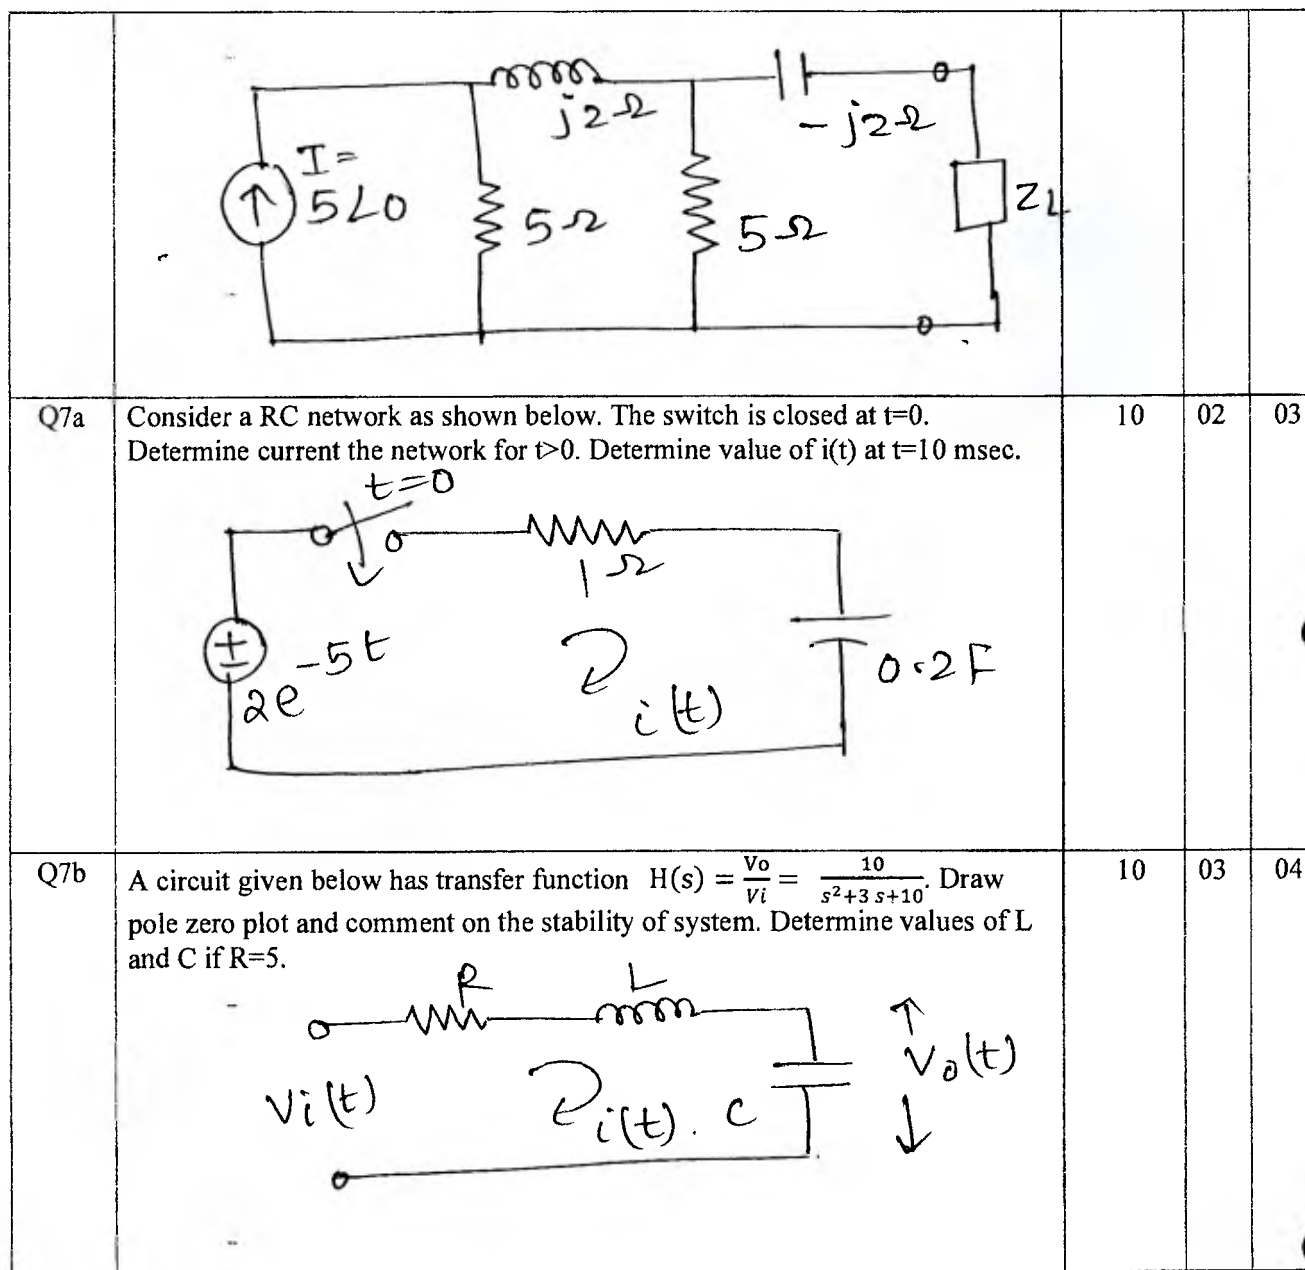 I=
5∠0
j2Ω
-j2Ω
5Ω
5Ω
ZL
Q7a Consider a RC network as shown below. The switch is closed at t=0. 10 02 03
Determine current the network for t>0. Determine value of i(t) at t=10 msec.
t=0
1Ω
2e^-5t
i(t)
0.2F
Q7b A circuit given below has transfer function H(s) = Vo/Vi = 10/(s²+3 s+10). Draw 10 03 04
pole zero plot and comment on the stability of system. Determine values of L
and C if R=5.
R
L
Vi(t)
i(t).
C
Vo(t)